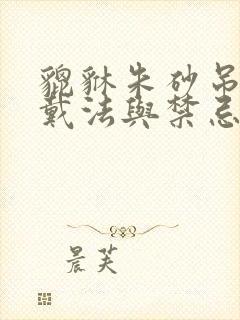 貔貅朱砂吊
戴法與禁忌
晨芙